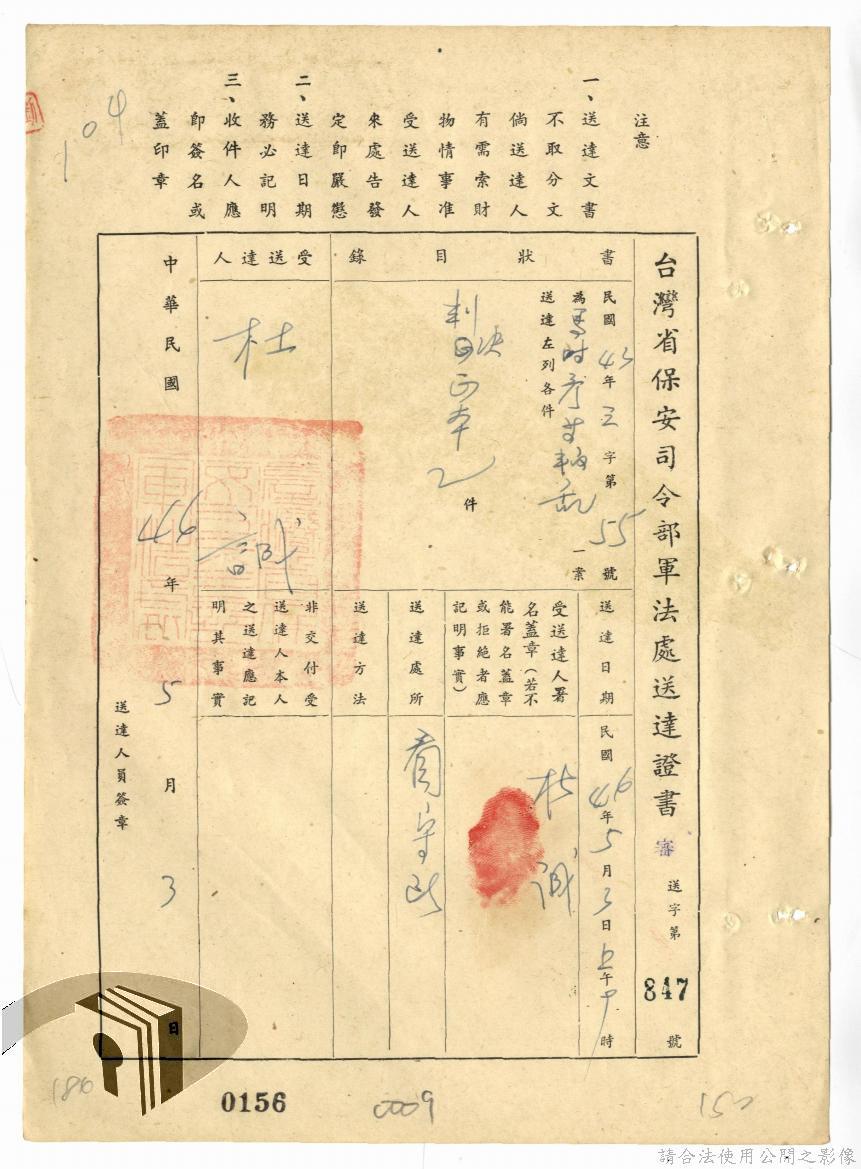 注意
一、送達文書
不取分文
倘送達人
有需索財
物情事准
受送達人
來處告發
定即嚴懲
二、送達日期
務必記明
三、收件人應
即簽名或
蓋印章
104
台灣省保安司令部軍法處送達證書
審
送字第
847
號
書狀目錄
民國43年三字第55號
為馬時彥等叛亂一案
送達左列各件
判決
正本
件
受送達人
杜誠
送達日期
民國46年5月3日上午9時
受送達人署
名蓋章(若不
能署名蓋章
或拒絕者應
記明事實)
杜誠
送達處所
看守所
送達方法
非交付受
送達人本人
之送達應記
明其事實
中華民國46年5月3日
送達人員簽章
186
0156
0009
請合法使用公開之影像